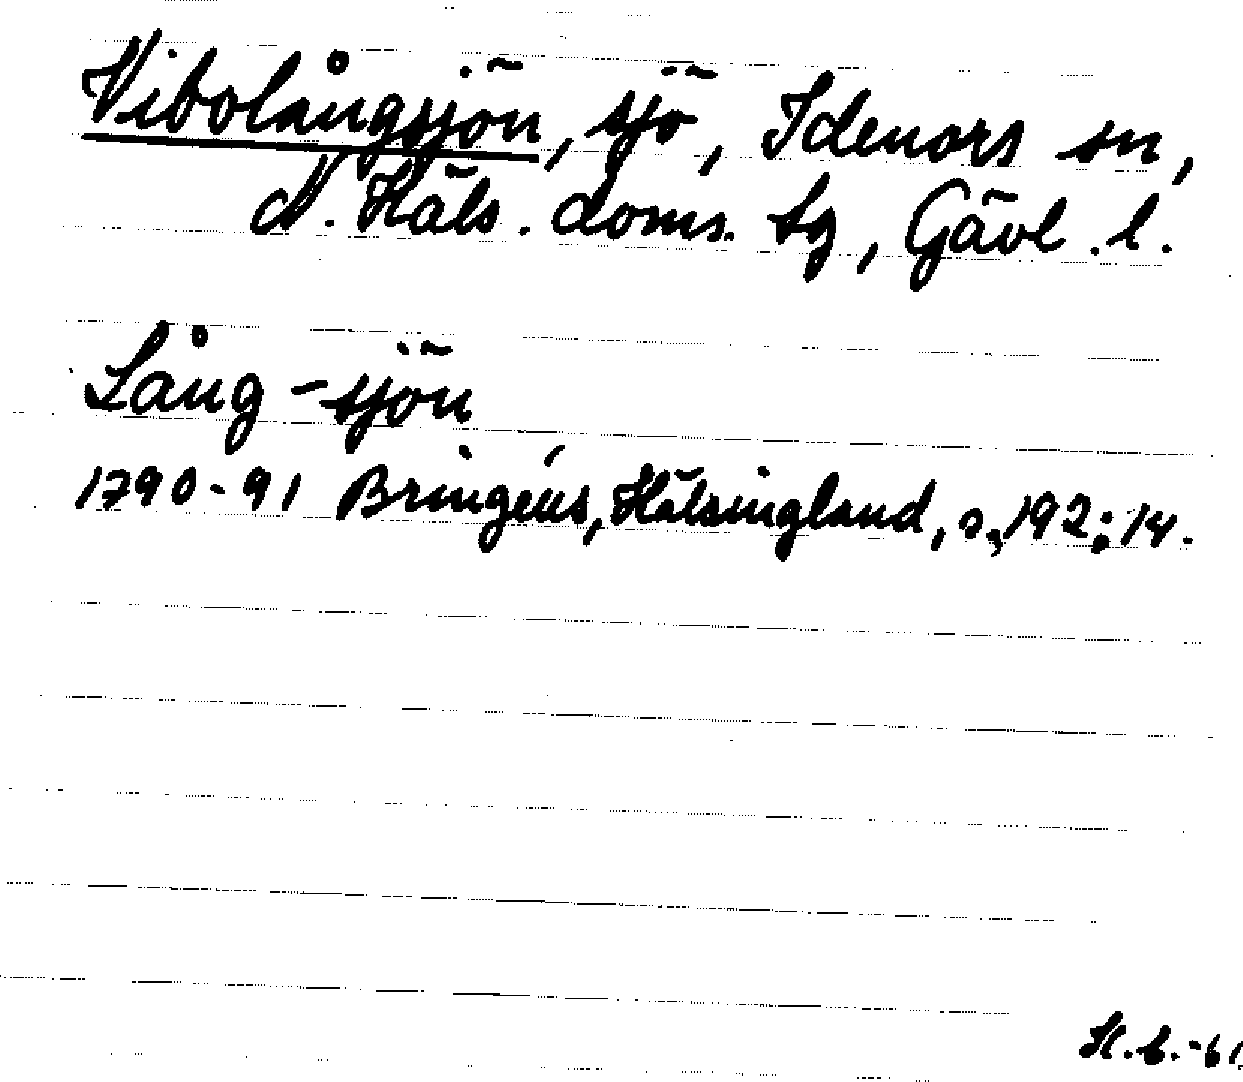 Vibolångsjön, sjö, Idenors sn,
N. Häls. doms. tg, Gävl. l.
Lång-sjön
1790-91 Bringéus, Hälsingland, s, 192:14.
H.b.-61.